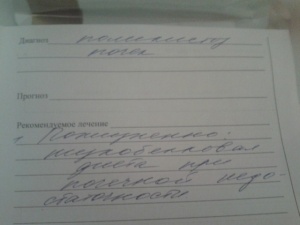 Диагноз поликистоз
почек
Прогноз
Рекомендуемое лечение
Пожизненно:
низкобелковая
диета при
почечной недо-
статочности